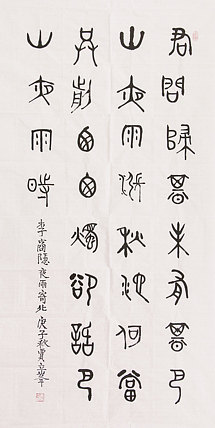 君問歸期未有期巴
山夜雨漲秋池何當
共剪西窗燭卻話巴
山夜雨時
李商隱夜雨寄北 庚子秋賈